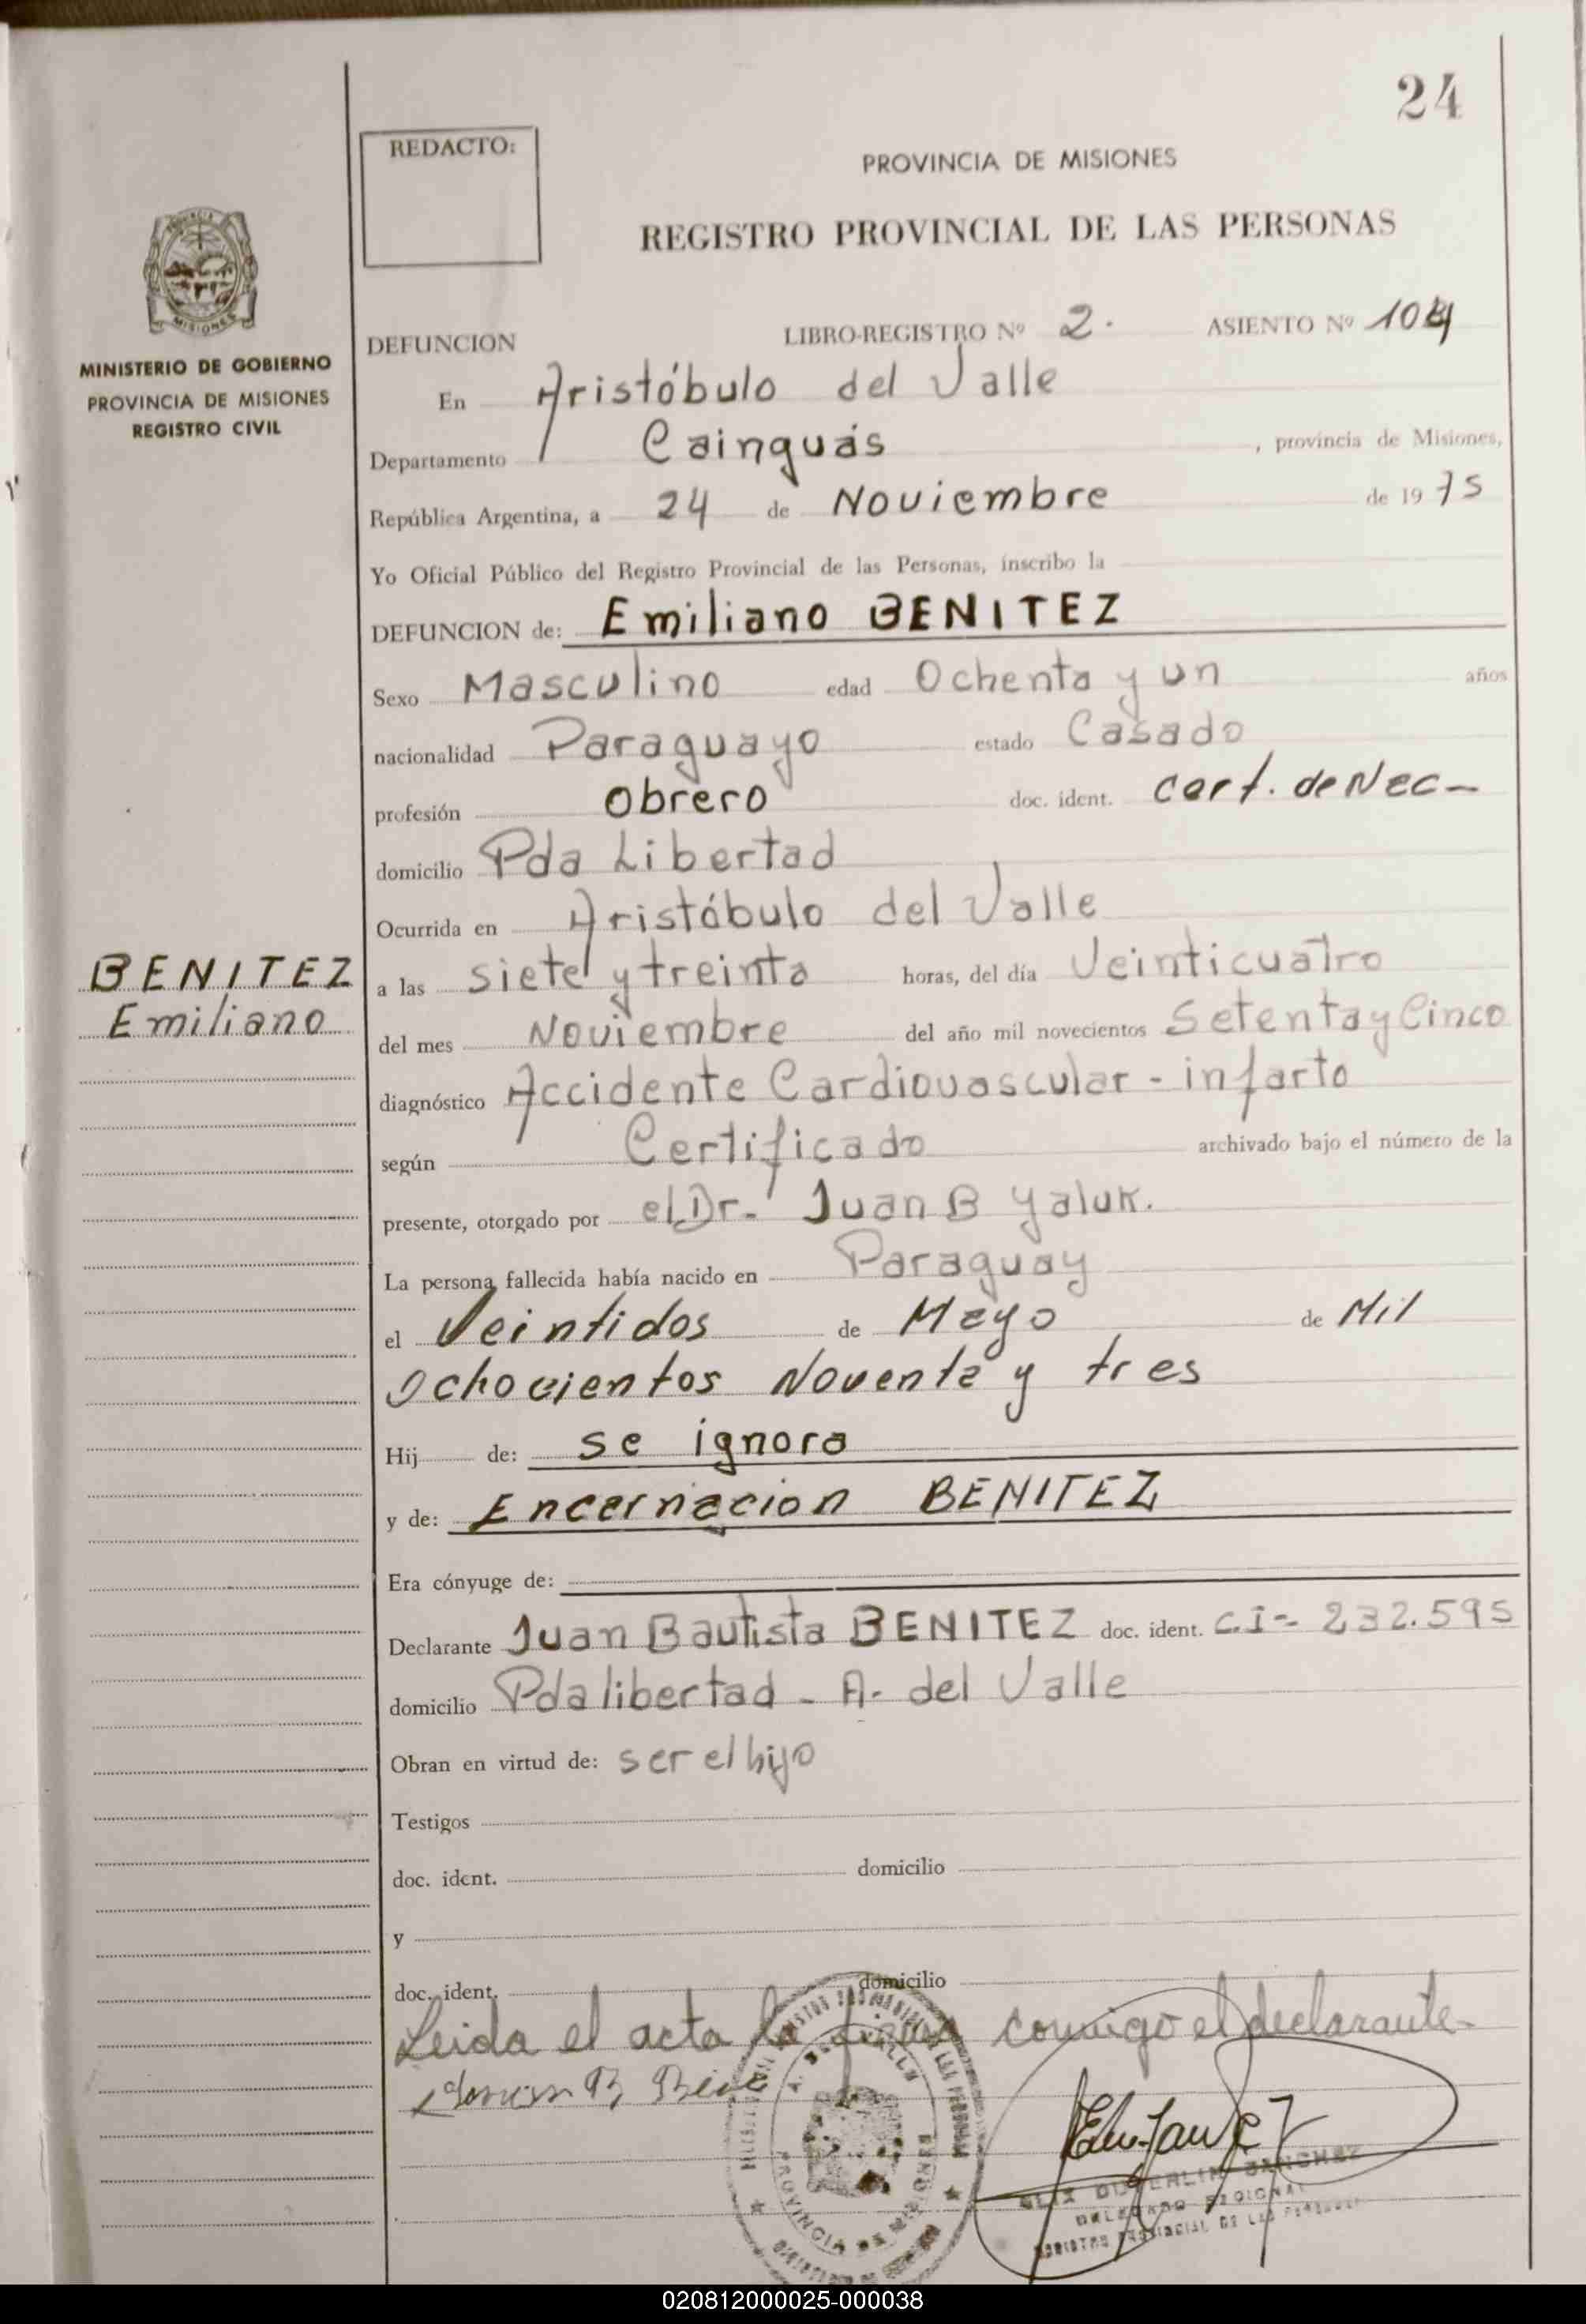 24
REDACTO:
PROVINCIA DE MISIONES
REGISTRO PROVINCIAL DE LAS PERSONAS
MISIONES
MINISTERIO DE GOBIERNO
PROVINCIA DE MISIONES
REGISTRO CIVIL
DEFUNCION LIBRO-REGISTRO Nº 2. ASIENTO Nº
En Aristóbulo del Valle
Departamento Cainguás , provincia de Misiones,
República Argentina, a 24 de Noviembre de 19 75
Yo Oficial Público del Registro Provincial de las Personas, inscribo la
DEFUNCION de: Emiliano BENITEZ
Sexo Masculino edad Ochenta y un años
nacionalidad Paraguayo estado Casado
profesión Obrero doc. ident. Cert. de Nac-
domicilio Pda Libertad
Ocurrida en Aristóbulo del Valle
BENITEZ
Emiliano
a las siete y treinta horas, del día Veinticuatro
del mes Noviembre del año mil novecientos Setenta y Cinco
diagnóstico Accidente Cardiovascular - infarto
según Certificado archivado bajo el número de la
presente, otorgado por el Dr. Juan B Yaluk.
La persona fallecida había nacido en Paraguay
el Veintidos de Mayo de Mil
Ochocientos Noventa y tres
Hij de: se ignora
y de: Encarnacion BENITEZ
Era cónyuge de:
Declarante Juan Bautista BENITEZ doc. ident. C.I- 232.595
domicilio Pda libertad - A. del Valle
Obran en virtud de: ser el hijo
Testigos
doc. ident. domicilio
y
doc. ident. domicilio
Leida el acta la firma conmigo el declarante-
SANCHEZ
DELEGADO REGIONAL
REGISTRO PROVINCIAL DE LAS PERSONAS
PROVINCIA DE MISIONES
020812000025-000038